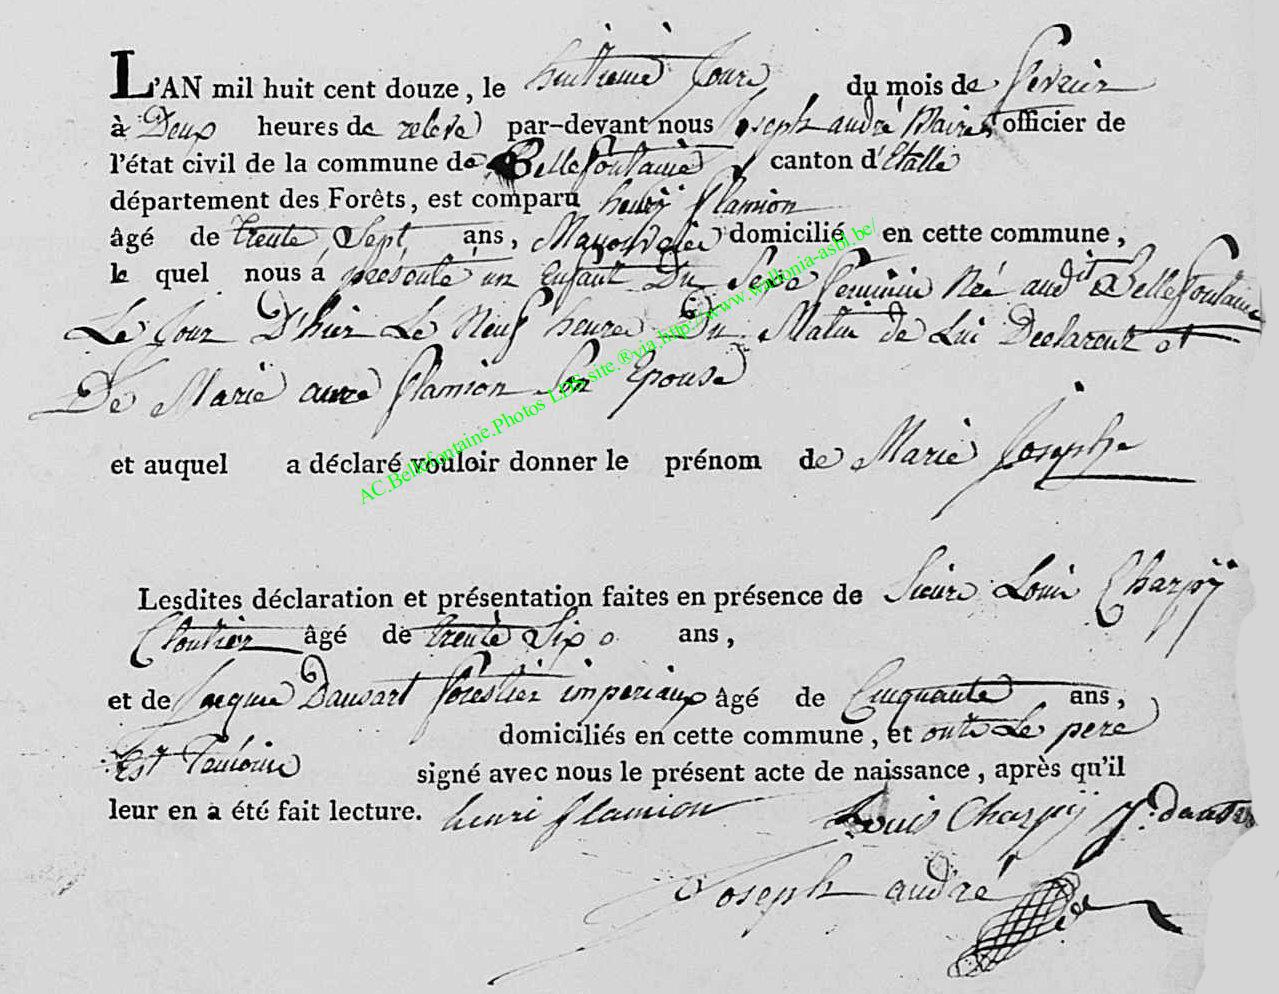 L'AN mil huit cent douze, le huitieme Jour du mois de fevrier
à Deux heures de relevé par-devant nous joseph andré Maire officier de
l'état civil de la commune de Bellefontaine canton d'Etalle
département des Forêts, est comparu henry flamion
âgé de trente Sept ans, Manouvrier domicilié en cette commune,
le quel nous à présenté un Enfant Du Sexe feminin Née audit Bellefontaine
Le Jour D'hier Le Neuf heures Du Matin de Lui Declarant et
De Marie anne flamion Son Epouse
et auquel a déclaré vouloir donner le prénom de Marie Josephe
Lesdites déclaration et présentation faites en présence de Sieure Louis Charpÿ
Cloutier âgé de trente Six ans,
et de Jacque Dausart forestier imperiaux âgé de Cinquante ans,
domiciliés en cette commune, et le pere
Est Temoins signé avec nous le présent acte de naissance, après qu'il
leur en a été fait lecture. henri flamion Louis Charpÿ J. dausar
Joseph andré
AC.Bellefontaine.Photos LDS site.®via http://www.wallonia-asbl.be/